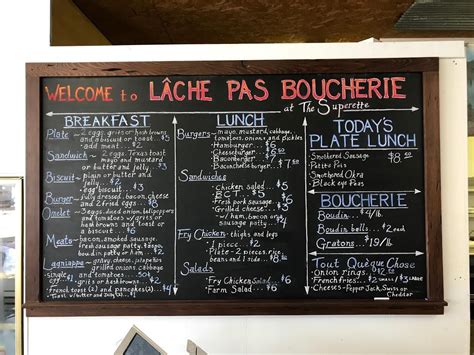 WELCOME to LÂCHE PAS BOUCHERIE
at The Superette
BREAKFAST
Plate ~ 2 eggs, grits or hash browns
and a biscuit or toast ... $5
add meat ... $2
Sandwich ~ 2 eggs, Texas toast
mayo and mustard
or butter and jelly ... $3
Biscuit ~ plain or butter and
jelly ... $2
egg ... $1
meat ... $3
Burger ~ fully dressed, bacon, cheese
and 2 fried eggs ... $8
Omlet ~ 3 eggs, diced onion, bellpeppers
and tomatoes w/ grits or
hash browns and toast or
a biscuit ... $6
Meats ~ bacon, smoked sausage,
fresh sausage patty,
boudin patty or ham ... $2
Lagniappe
single egg ... 50¢
grits or hash browns ... $2
French toast (2) and pancakes (2) ... $4
LUNCH
Burgers ~ mayo, mustard, cabbage,
tomatoes, onions + pickles
Hamburger ... $6
Cheeseburger ... $6
Baconburger ... $7
Sandwiches
Chicken salad ... $5
BLT ... $5
Fresh pork sausage ... $6
Grilled cheese ... $4
w/ ham, bacon or
sausage patty ... $6
Fry Chicken ~ thighs and legs
1 piece ... $2
Plate - 2 pieces, rice,
beans and 1 side ... $8
Salads
Fry Chicken Salad ... $6
Farm Salad ... $6
TODAY'S
PLATE LUNCH
Smothered Sausage
Potato
Smothered Okra
Black eye Peas
$8.50
BOUCHERIE
Boudin ... $4/lb
Boudin balls ... 2 each
Gratons ... $19/lb
Tout Quèque Chose
Onion rings ... $2.50
French fries ... 2 small / $3 LARGE
Cheeses ~ Pepper Jack, Swiss or
Cheddar